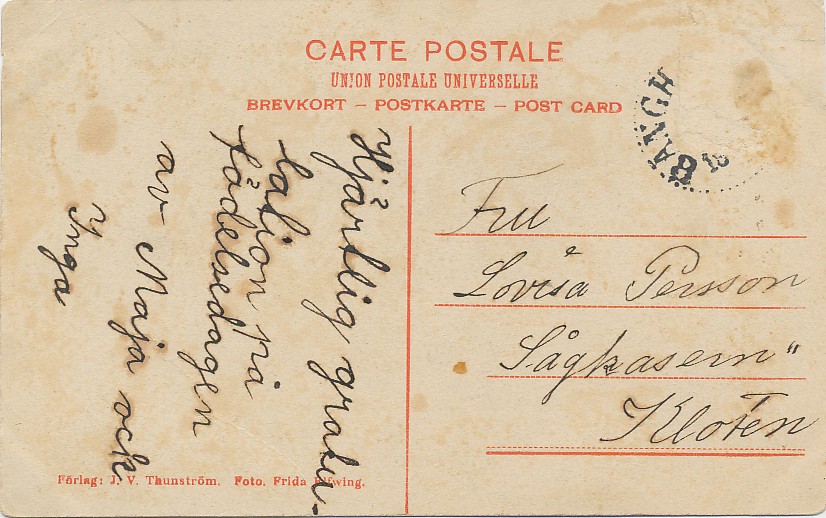 CARTE POSTALE
UNION POSTALE UNIVERSELLE
BREVKORT – POSTKARTE – POST CARD
Hjärtlig gratu-
lation på
födelsedagen
av Maja och
Inga
ÄNGH
Fru
Lovisa Persson
Sågkasern"
Kloten
Förlag: J. V. Thunström. Foto. Frida Elfwing.